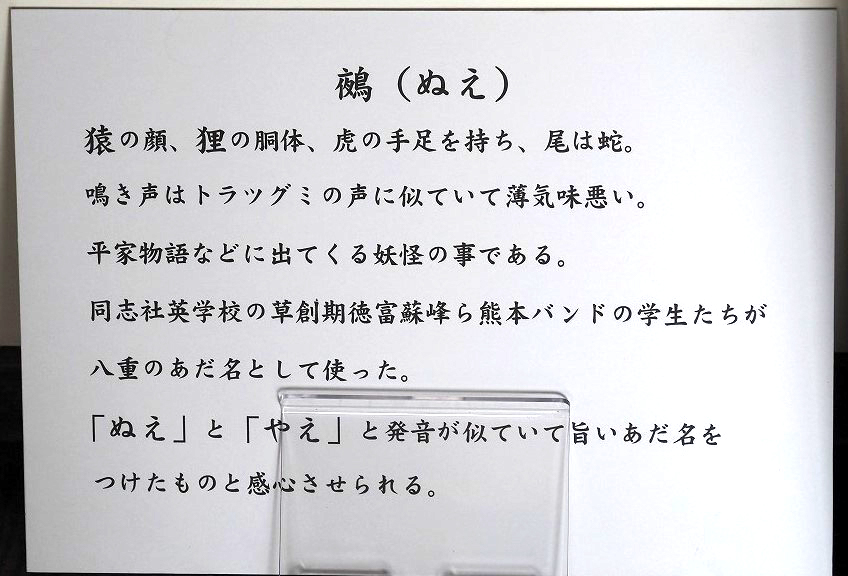 鵺（ぬえ）
猿の顔、狸の胴体、虎の手足を持ち、尾は蛇。
鳴き声はトラツグミの声に似ていて薄気味悪い。
平家物語などに出てくる妖怪の事である。
同志社英学校の草創期徳富蘇峰ら熊本バンドの学生たちが
八重のあだ名として使った。
「ぬえ」と「やえ」と発音が似ていて旨いあだ名を
つけたものと感心させられる。